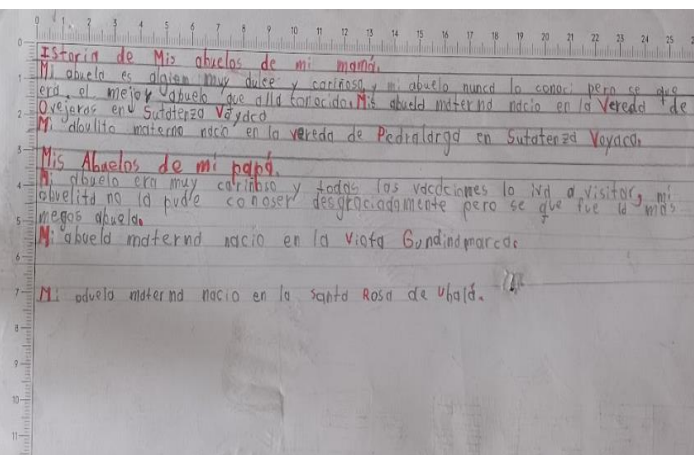 0 1 2 3 4 5 6 7 8 9 10 11 12 13 14 15 16 17 18 19 20 21 22 23 24 25
IStoria de Mis abuelos de mi mamá.
Mi abuela es alguien muy dulce y cariñosa, y mi abuelo nunca lo conocí pero se que
era el mejor abuelo que alla conocido. Mis abuela materna nacio en la Vereda de
Ovejeras en Sutatenza Voyaca
Mi aboulito materno nacio en la vereda de Pedralarga en Sutatenza Voyaca.
Mis Abuelos de mi papá.
Mi abuelo era muy cariñoso y todas las vacaciones lo iva a visitar, mi
abuelita no la pude conoser desgraciadamente pero se que fue la más
megos abuela.
Mi abuela materna nacio en la Viota Gundinamarca.
Mi aduelo materna nacio en la Santa Rosa de Ubalá.
0
1
2
3
4
5
6
7
8
9
10
11